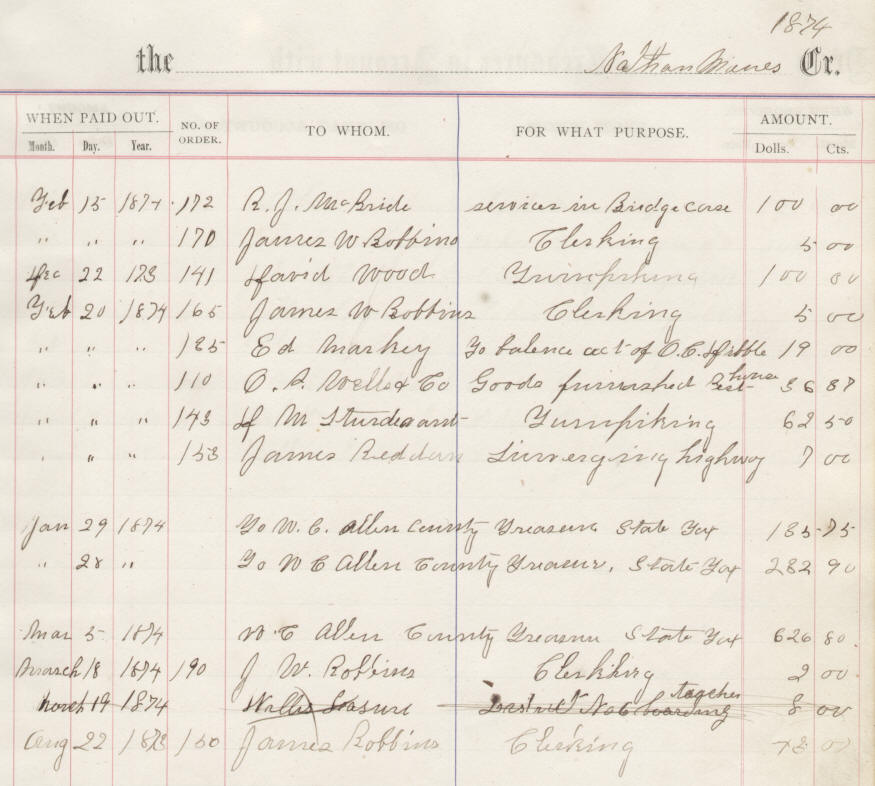 1874
the Nathan Cr.
WHEN PAID OUT. NO. OF ORDER. TO WHOM. FOR WHAT PURPOSE. AMOUNT.
Month. Day. Year. Dolls. Cts.
Feb 15 1874 172 R. J. McBride services in Bridge case 100 00
" " " 170 James W Robbins Clerking 5 00
Dec 22 173 141 David Wood Turnpiking 100 00
Feb 20 1874 165 James W Robbins Clerking 5 00
" " " 135 Ed Markey To balence act of O. C. Dibble 19 00
" " " 110 O. A. Wells & Co Goods furnished house 36 87
" " " 143 D M Sturdevant Turnpiking 62 50
" " " 153 James Reddan highway 7 00
Jan 29 1874 To W. C. Allen County Treasurer State Tax 135 75
" 28 " To W C Allen County Treasur, State Tax 282 90
Mar 5 1874 W. C Allen County Treasurer State Tax 626 80.
March 18 1874 190 J W. Robbins Clerking 2 00
March 19 1874 District No 6 boarding teacher 8 00
Aug 22 1873 150 James Robbins Clerking